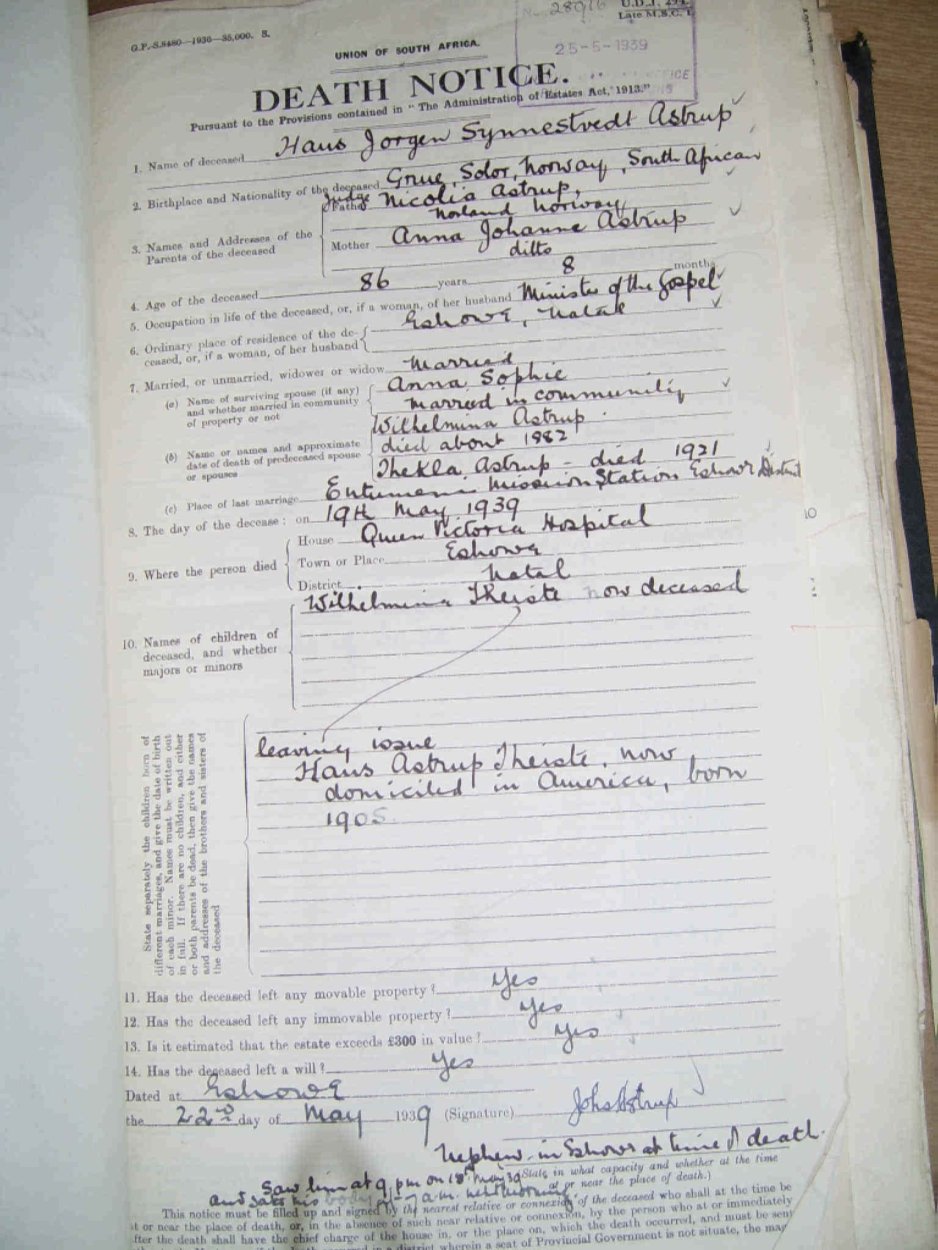 28916
U.D.J. 294.
Late M.S.C. 1.
G.P.-S.8480—1936—35,000. S.
25-5-1939
UNION OF SOUTH AFRICA.
DEATH NOTICE.
Pursuant to the Provisions contained in "The Administration of Estates Act, 1913."
1. Name of deceased Hans Jorgen Synnestvedt Astrup
2. Birthplace and Nationality of the deceased Grue, Solor, Norway, South African
3. Names and Addresses of the Parents of the deceased
Father Judge Nicolia Astrup,
Norland Norway
Mother Anna Johanne Astrup
ditto
4. Age of the deceased 86 years 8 months
5. Occupation in life of the deceased, or, if a woman, of her husband Minister of the Gospel
6. Ordinary place of residence of the deceased, or, if a woman, of her husband Eshowe, Natal
7. Married, or unmarried, widower or widow Married
(a) Name of surviving spouse (if any) and whether married in community of property or not
Anna Sophie
Married in community
(b) Name or names and approximate date of death of predeceased spouse or spouses
Wilhelmina Astrup
died about 1882
Thekla Astrup - died 1921
(c) Place of last marriage Entumeni Mission Station, Eshowe District
8. The day of the decease: on 19th May 1939
9. Where the person died
House Queen Victoria Hospital
Town or Place Eshowe
District Natal
10. Names of children of deceased, and whether majors or minors
Wilhelmina Theiste now deceased
State separately the children born of different marriages, and give the date of birth of each minor. Names must be written out in full. If there are no children, and either or both parents be dead, then give the names and addresses of the brothers and sisters of the deceased
leaving issue
Hans Astrup Theiste, now
domiciled in America, born
1905
11. Has the deceased left any movable property? Yes
12. Has the deceased left any immovable property? Yes
13. Is it estimated that the estate exceeds £300 in value? Yes
14. Has the deceased left a will? Yes
Dated at Eshowe
the 22nd day of May 1939 (Signature) Joh Astrup
Nephew - in Eshowe at time of death.
(State in what capacity and whether at the time
at or near the place of death.)
Saw him at 9 pm on 18th May 39
and saw his body at 7 a.m. next morning
This notice must be filled up and signed by the nearest relative or connexion of the deceased who shall at the time be
at or near the place of death, or, in the absence of such near relative or connexion, by the person who at or immediately
after the death shall have the chief charge of the house in, or the place on, which the death occurred, and must be sent
in a district wherein a seat of Provincial Government is not situate, the mag